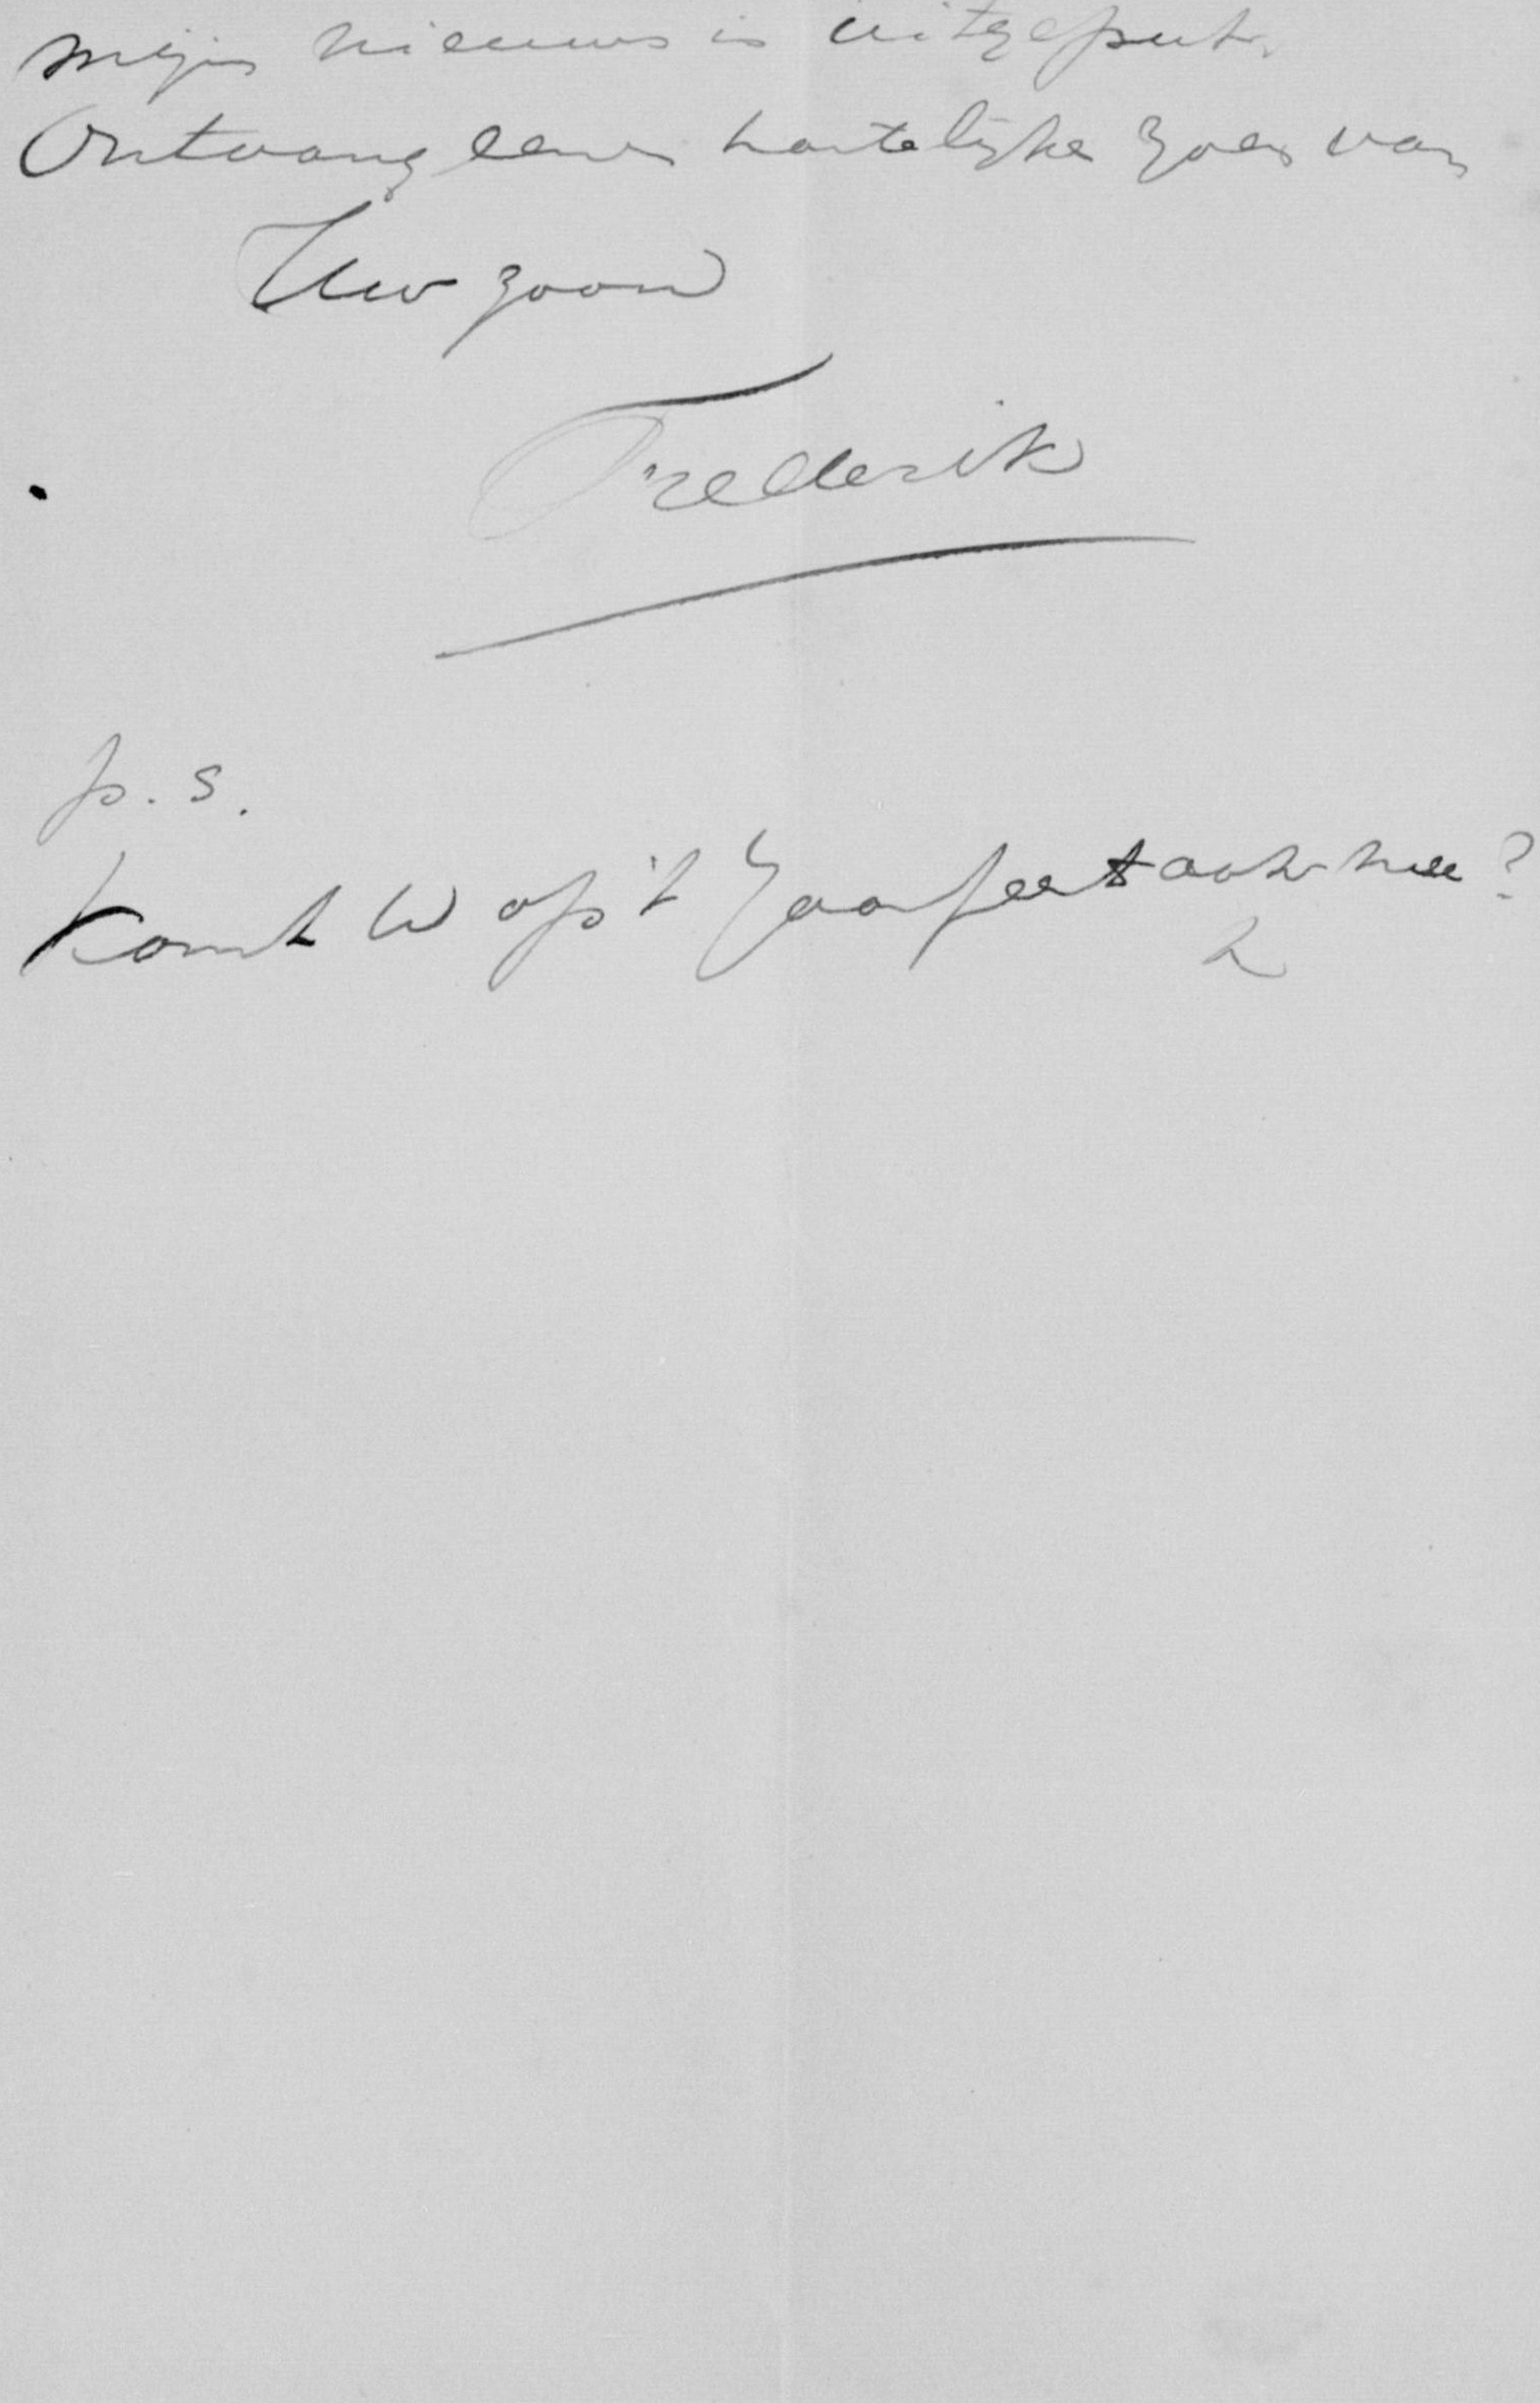 mijn nieuws is uitgeput.
Ontvang eene hartelijke zoen van
Uw zoon
Frederik
p.s.
Komt U op 't Jaarfeest ook hee?